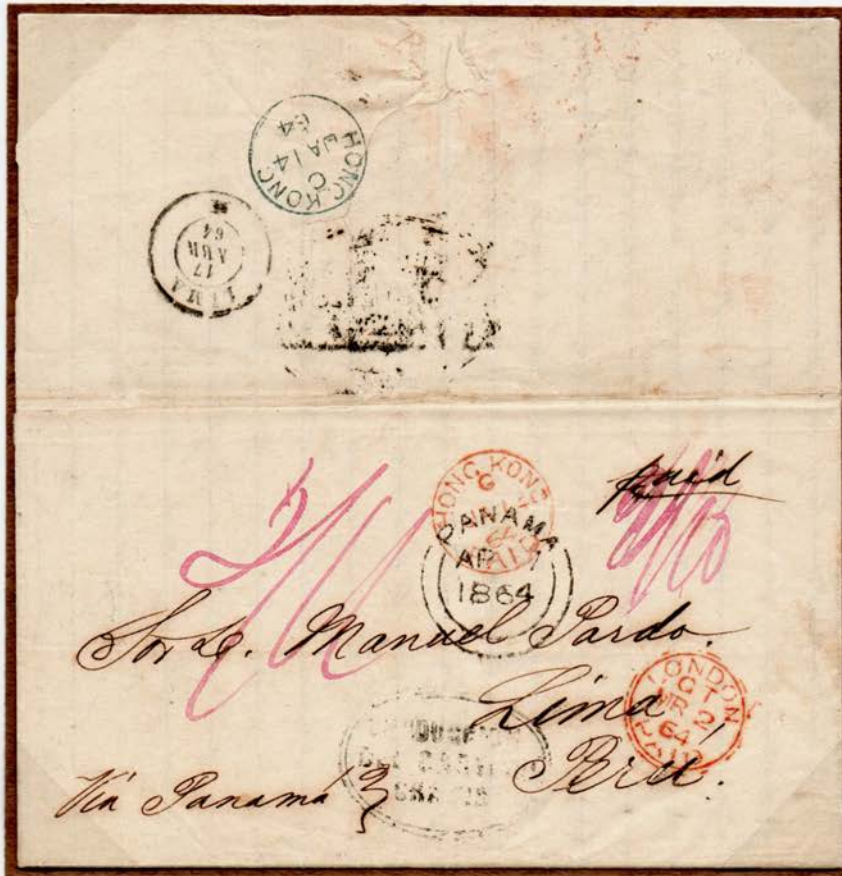 HONG KONG
C
JA 14
64
LIMA
17
ABR
64
paid
HONG KONG
64
PAID
PANAMA
AP 7
1864
Sor Dn. Manuel Pardo.
Lima,
Perú.
LONDON
CT
MR 2
64
PAID
GRATIS
Via Panamá